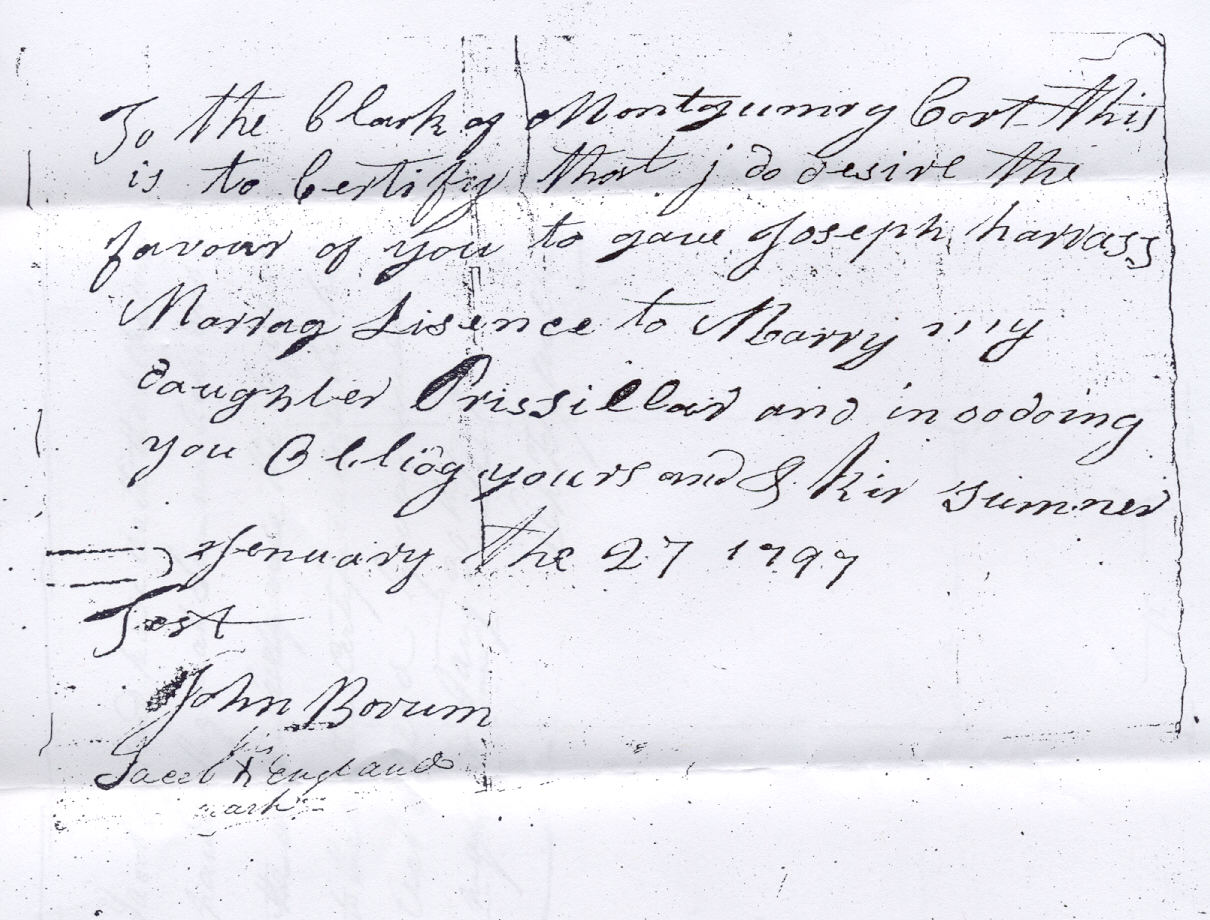 To the Clark of Montgumry Cort this
is to Certify that j do desire the
favour of You to gave Joseph harvass
Marrag Lisence to Marry my
daughter Prissillar and in sodoing
you Obliög yours and & Kir Sumner
Jenuary the 27 1797
Test
John Bovum
his
Jacob X England
mark